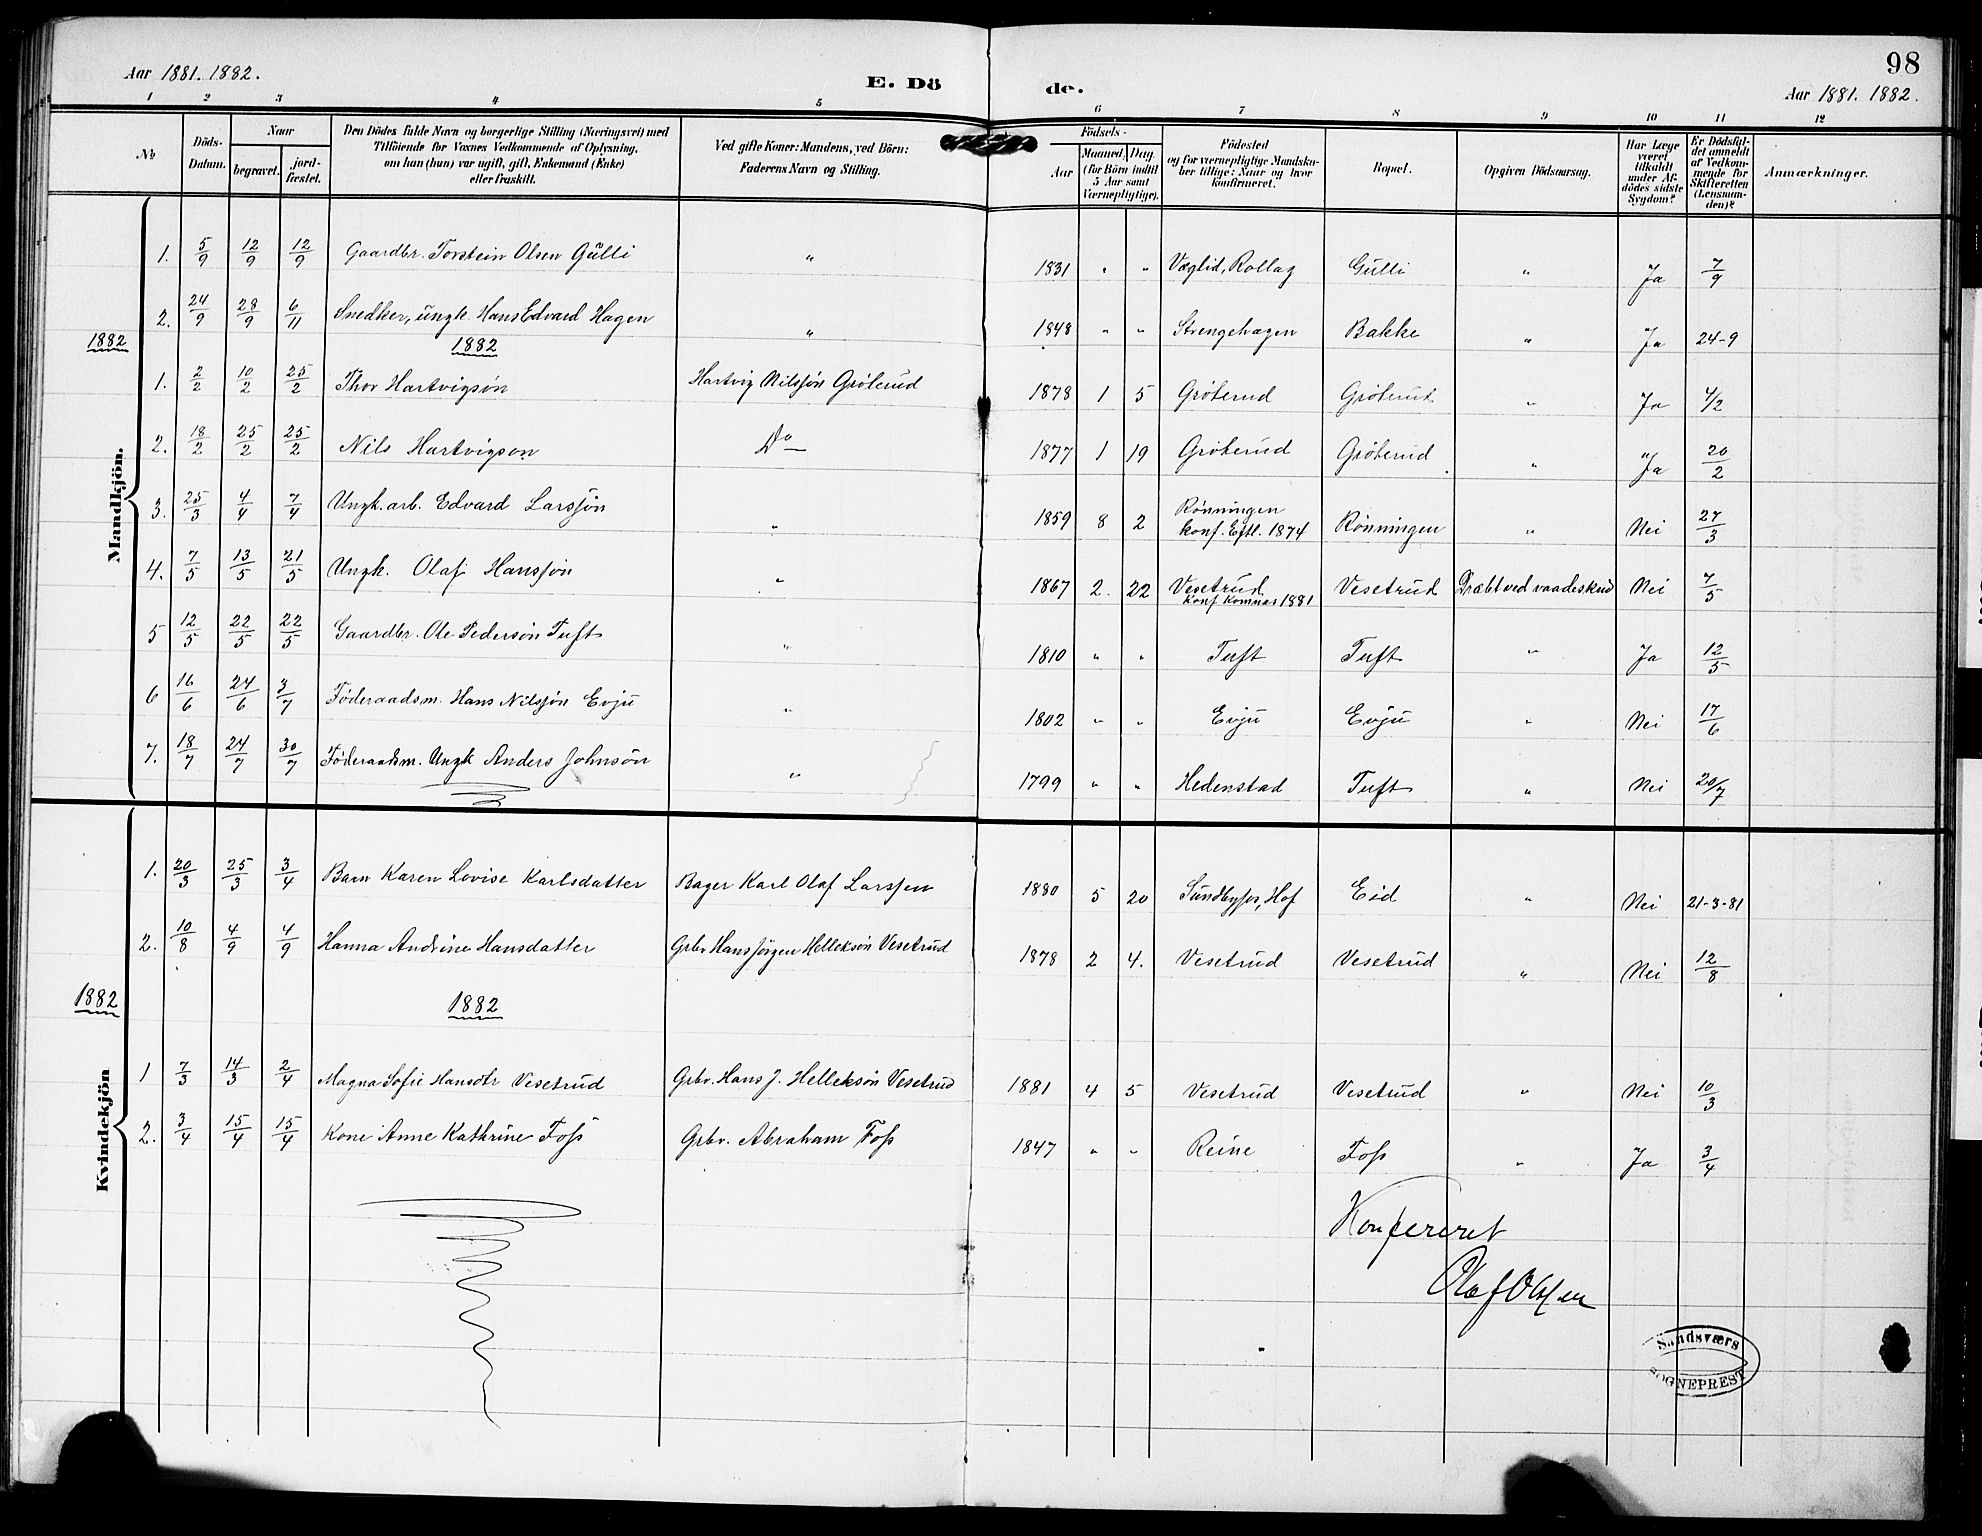 98
Aar 1881. 1882.
E. Dö de.
Aar 1881. 1882.
1 2 3 4 5 6 7 8 9 10 11 12
No
Döds-Datum.
Naar
begravet.
jord-fæstet.
Den Dödes fulde Navn og borgerlige Stilling (Næringsvei) med
Tilföiende for Voxnes Vedkommende af Oplysning,
om han (hun) var ugift, gift, Enkemand (Enke)
eller fraskilt.
Ved gifte Koner: Mandens, ved Börn:
Faderens Navn og Stilling.
Födsels-
Aar
Maaned. Dag
(for Börn indtil
5 Aar samt
Værnepligtige).
Födested
og for værnepligtige Mandska-
ber tillige: Naar og hvor
konfirmeret.
Bopæl.
Opgiven Dödsaarsag.
Har Læge
været
tilkaldt
under Af-
dödes sidste
Sygdom?
Er Dödsfal-
det anmeldt
af Vedkom-
mende for
Skifteretten
(Lensman-
den)?
Anmærkninger.
Mandkjön.
1. 5/9 12/9 12/9 Gaardbr. Torstein Olsen Gulli " 1831 " " Væglid, Rollag Gulli " Ja 7/9
2. 24/9 28/9 6/11 Snedker, ungk. Hans Edvard Hagen " 1848 " " Strengehagen Bakke " Ja 24-9
1882 1882
1. 2/2 10/2 25/2 Thor Hartvigsøn Hartvig Nilssøn Grøterud 1878 1 5 Grøterud Grøterud " Ja 4/2
2. 18/2 25/2 25/2 Nils Hartvigsøn Do 1877 1 19 Grøterud Grøterud " Ja 20/2
3. 25/3 4/4 7/4 Ungk. arb. Edvard Larssøn " 1859 8 2 Rønningen
konf. Eftl. 1874 Rønningen " Nei 27/3
4. 7/5 13/5 21/5 Ungk. Olaf Hanssøn " 1867 2. 22 Vesetrud
Konf Komnes 1881 Vesetrud Dræbt ved vaadeskud Nei 7/5
5 12/5 22/5 22/5 Gaardbr. Ole Pedersøn Tuft " 1810 " " Tuft Tuft " Ja 12/5
6 16/6 24/6 3/7 Føderaadsm. Hans Nilssøn Evju " 1802 " " Evju Evju " Nei 17/6
7. 18/7 24/7 30/7 Føderaadsm. Ungk Anders Johnsøn " 1799 " " Hedenstad Tuft " Nei 20/7
Kvindekjön
1. 20/3 25/3 3/4 Barn Karen Lovise Karlsdatter Bager Karl Olaf Larssen 1880 5 20 Sundbyfos, Hof Eid " Nei 21-3-81
2. 10/8 4/9 4/9 Hanna Andrine Hansdatter Grbr Hans Jørgen Helleksøn Vesetrud 1878 2 4. Vesetrud Vesetrud " Nei 12/8
1882 1882
1 7/3 14/3 2/4 Magna Sofie Hansdtr Vesetrud Grbr. Hans J. Helleksøn Vesetrud 1881 4 5 Vesetrud Vesetrud " Nei 10/3
2. 3/4 15/4 15/4 Kone Anne Kathrine Foss Grbr. Abraham Foss 1847 " " Reine Foss " Ja 3/4
Konfereret
Olaf Olssen
Sandsværs
SOGNEPREST